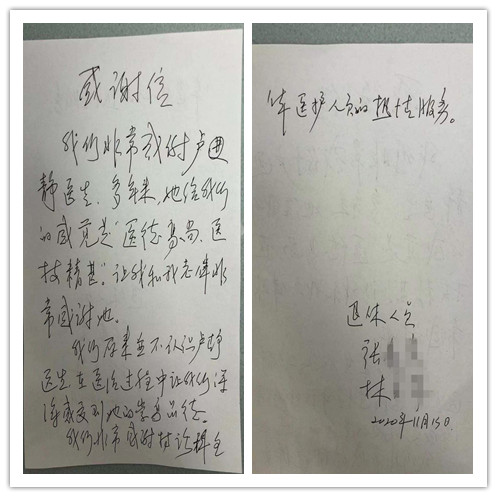 感谢信
我们非常感谢卢曲
静医生、多年来,她给我们
的感觉是"医德高尚、医
技精甚"。让我和我老伴非
常感谢她。
我们原来并不认识卢静
医生在医治过程中让我们深
深感受到她的崇高品德。
我们非常感谢核诊科全
体医护人员的热情服务。
退休人员
张
林
2020年11月15日.